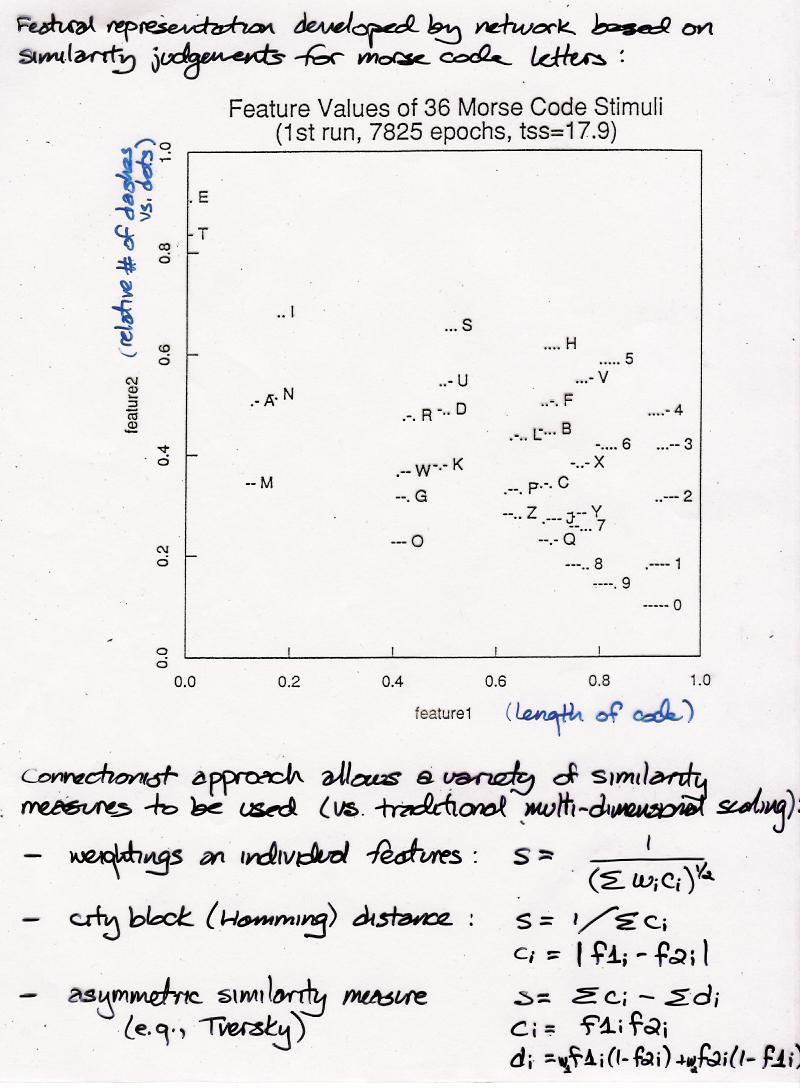 Featural representation developed by network based on
similarity judgements for morse code letters :
Feature Values of 36 Morse Code Stimuli
(1st run, 7825 epochs, tss=17.9)
feature2 (relative # of dashes
vs. dots)
1.0
. E
- T
0.8
.. I
... S
.... H
0.6
..... 5
...- V
..- U
-. N
.- A
..-. F
-.. D
.-. R
....- 4
-... B
.-.. L
-.... 6
...-- 3
0.4
-..- X
-.- K
.-- W
-- M
-.-. C
.--. P
--. G
..--- 2
--.. Z
-.-- Y
.--- J
--... 7
--- O
--.- Q
0.2
---.. 8
.---- 1
----. 9
----- 0
0.0
0.0 0.2 0.4 0.6 0.8 1.0
feature1 (length of code)
Connectionist approach allows a variety of similarity
measures to be used (vs. traditional multi-dimensional scaling):
- weightings on individual features : s = 1 / (Σ wᵢcᵢ)^½
- city block (Hamming) distance : s = 1/Σcᵢ
cᵢ = |f1ᵢ - f2ᵢ|
- asymmetric similarity measure s = Σcᵢ - Σdᵢ
(e.g., Tversky) cᵢ = f1ᵢf2ᵢ
dᵢ = w₁f1ᵢ(1-f2ᵢ) + w₂f2ᵢ(1-f1ᵢ)